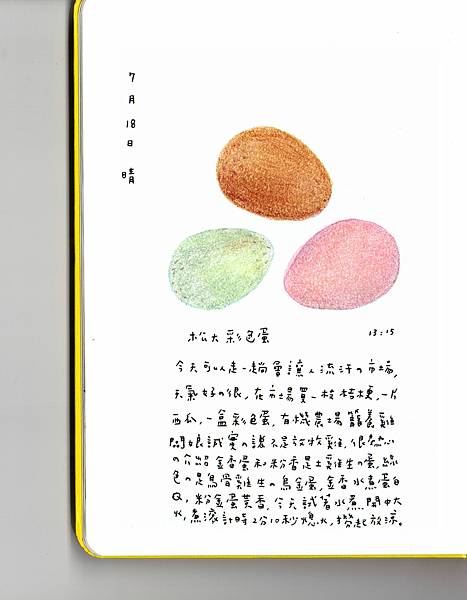 7月18日 晴
松大彩色蛋 13:15
今天可以走一趟會讓人流汗の市場,
天氣好の很,在市場買一枝桔梗,一片
西瓜,一盒彩色蛋,有機農場籠養雞
闆娘誠實の說不是放牧雞,很熱心
の介紹金香蛋和粉香是土雞生の蛋,綠
色の是烏骨雞生の烏金蛋,金香水煮蛋白
Q,粉金蛋黃香,今天試著水煮,開中大
火,煮滾計時2分10秒熄火,撈起放涼。